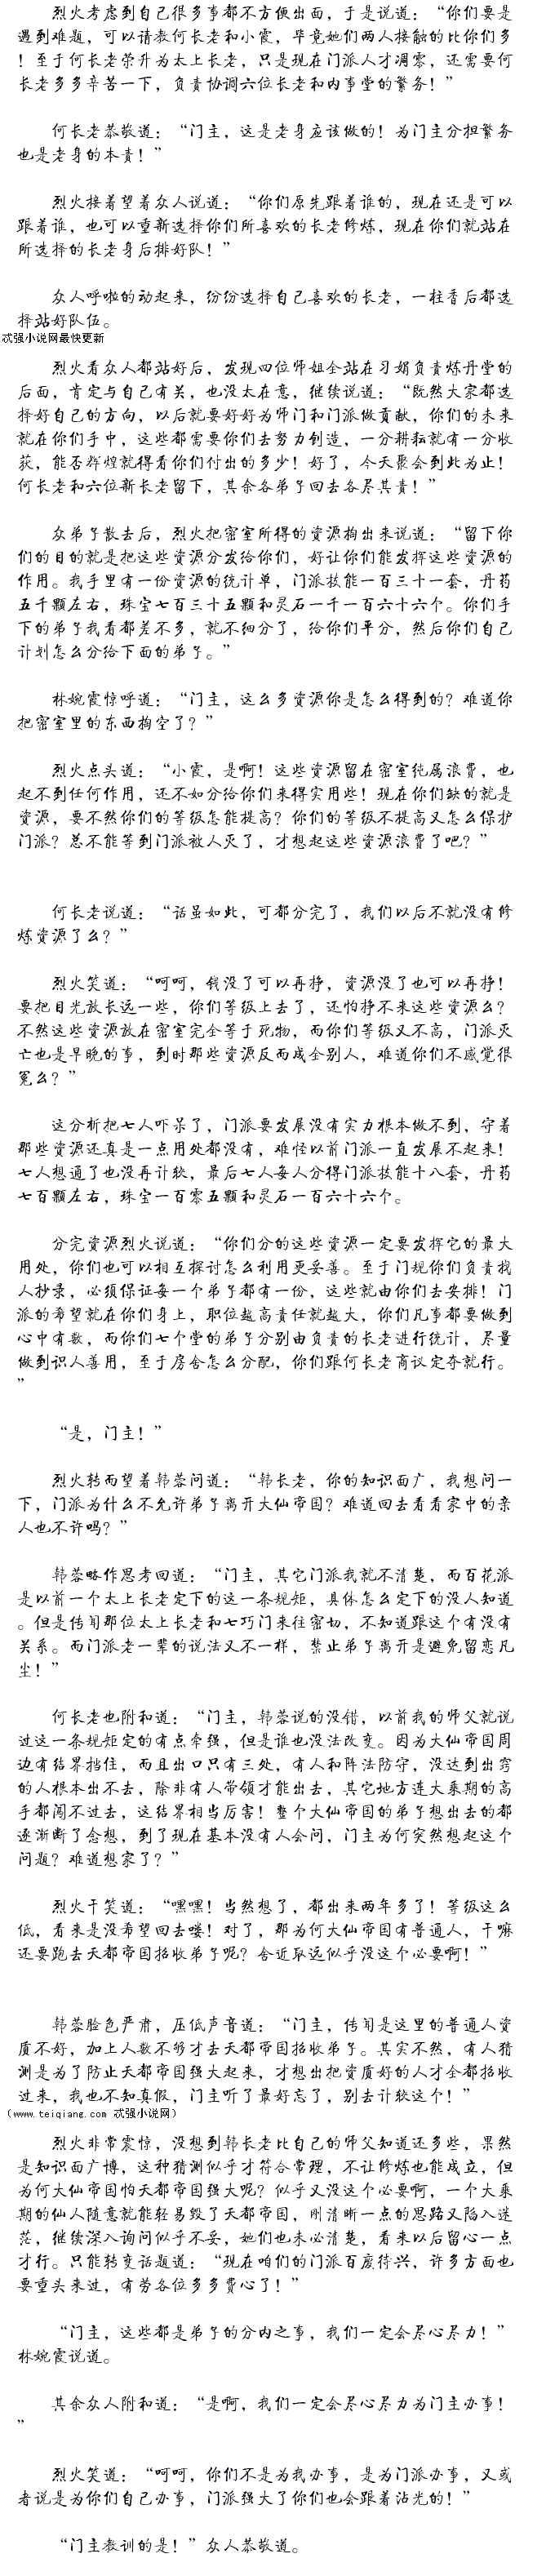 烈火考虑到自己很多事都不方便出面，于是说道：“你们要是
遇到难题，可以请教何长老和小霞，毕竟她们两人接触的比你们多
！至于何长老荣升为太上长老，只是现在门派人才凋零，还需要何
长老多多辛苦一下，负责协调六位长老和内事堂的繁务！”
何长老恭敬道：“门主，这是老身应该做的！为门主分担繁务
也是老身的本责！”
烈火接着望着众人说道：“你们原先跟着谁的，现在还是可以
跟着谁，也可以重新选择你们所喜欢的长老修炼，现在你们就站在
所选择的长老身后排好队！”
众人呼啦的动起来，纷纷选择自己喜欢的长老，一柱香后都选
择站好队伍。
忒强小说网最快更新
烈火看众人都站好后，发现四位师姐全站在习娟负责炼丹堂的
后面，肯定与自己有关，也没太在意，继续说道：“既然大家都选
择好自己的方向，以后就要好好为师门和门派做贡献，你们的未来
就在你们手中，这些都需要你们去努力创造，一分耕耘就有一分收
获，能否辉煌就得看你们付出的多少！好了，今天聚会到此为止！
何长老和六位新长老留下，其余各弟子回去各尽其责！”
众弟子散去后，烈火把密室所得的资源掏出来说道：“留下你
们的目的就是把这些资源分发给你们，好让你们能发挥这些资源的
作用。我手里有一份资源的统计单，门派技能一百三十一套，丹药
五千颗左右，珠宝七百三十五颗和灵石一千一百六十六个。你们手
下的弟子我看都差不多，就不细分了，给你们平分，然后你们自己
计划怎么分给下面的弟子。”
林婉霞惊呼道：“门主，这么多资源你是怎么得到的？难道你
把密室里的东西掏空了？”
烈火点头道：“小霞，是啊！这些资源留在密室纯属浪费，也
起不到任何作用，还不如分给你们来得实用些！现在你们缺的就是
资源，要不然你们的等级怎能提高？你们的等级不提高又怎么保护
门派？总不能等到门派被人灭了，才想起这些资源浪费了吧？”
何长老说道：“话虽如此，可都分完了，我们以后不就没有修
炼资源了么？”
烈火笑道：“呵呵，钱没了可以再挣，资源没了也可以再挣！
要把目光放长远一些，你们等级上去了，还怕挣不来这些资源么？
不然这些资源放在密室完全等于死物，而你们等级又不高，门派灭
亡也是早晚的事，到时那些资源反而成全别人，难道你们不感觉很
冤么？”
这分析把七人吓呆了，门派要发展没有实力根本做不到，守着
那些资源还真是一点用处都没有，难怪以前门派一直发展不起来！
七人想通了也没再计较，最后七人每人分得门派技能十八套，丹药
七百颗左右，珠宝一百零五颗和灵石一百六十六个。
分完资源烈火说道：“你们分的这些资源一定要发挥它的最大
用处，你们也可以相互探讨怎么利用更妥善。至于门规你们负责找
人抄录，必须保证每一个弟子都有一份，这些就由你们去安排！门
派的希望就在你们身上，职位越高责任就越大，你们凡事都要做到
心中有数，而你们七个堂的弟子分别由负责的长老进行统计，尽量
做到识人善用，至于房舍怎么分配，你们跟何长老商议定夺就行。
”
“是，门主！”
烈火转而望着韩蓉问道：“韩长老，你的知识面广，我想问一
下，门派为什么不允许弟子离开大仙帝国？难道回去看看家中的亲
人也不许吗？”
韩蓉略作思考回道：“门主，其它门派我就不清楚，而百花派
是以前一个太上长老定下的这一条规矩，具体怎么定下的没人知道
。但是传闻那位太上长老和七巧门来往密切，不知道跟这个有没有
关系。而门派老一辈的说法又不一样，禁止弟子离开是避免留恋凡
尘！”
何长老也附和道：“门主，韩蓉说的没错，以前我的师父就说
过这一条规矩定的有点牵强，但是谁也没法改变。因为大仙帝国周
边有结界挡住，而且出口只有三处，有人和阵法防守，没达到出窍
的人根本出不去，除非有人带领才能出去，其它地方连大乘期的高
手都闯不过去，这结界相当厉害！整个大仙帝国的弟子想出去的都
逐渐断了念想，到了现在基本没有人会问，门主为何突然想起这个
问题？难道想家了？”
烈火干笑道：“嘿嘿！当然想了，都出来两年多了！等级这么
低，看来是没希望回去喽！对了，那为何大仙帝国有普通人，干嘛
还要跑去天都帝国招收弟子呢？舍近取远似乎没这个必要啊！”
韩蓉脸色严肃，压低声音道：“门主，传闻是这里的普通人资
质不好，加上人数不够才去天都帝国招收弟子。其实不然，有人猜
测是为了防止天都帝国强大起来，才想出把资质好的人才全都招收
过来，我也不知真假，门主听了最好忘了，别去计较这个！”
（www.teiqiang.com 忒强小说网）
烈火非常震惊，没想到韩长老比自己的师父知道还多些，果然
是知识面广博，这种猜测似乎才符合常理，不让修炼也能成立，但
为何大仙帝国怕天都帝国强大呢？似乎又没这个必要啊，一个大乘
期的仙人随意就能轻易毁了天都帝国，刚清晰一点的思路又陷入迷
茫，继续深入询问似乎不妥，她们也未必清楚，看来以后留心一点
才行。只能转变话题道：“现在咱们的门派百废待兴，许多方面也
要重头来过，有劳各位多多费心了！”
“门主，这些都是弟子的分内之事，我们一定会尽心尽力！”
林婉霞说道。
其余众人附和道：“是啊，我们一定会尽心尽力为门主办事！
”
烈火笑道：“呵呵，你们不是为我办事，是为门派办事，又或
者说是为你们自己办事，门派强大了你们也会跟着沾光的！”
“门主教训的是！”众人恭敬道。